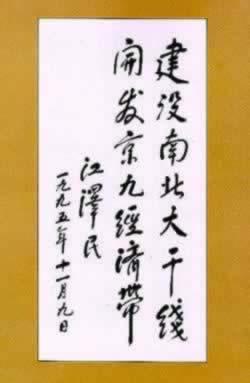 建设南北大干线
開发京九經濟带
江澤民
一九九五年十一月九日